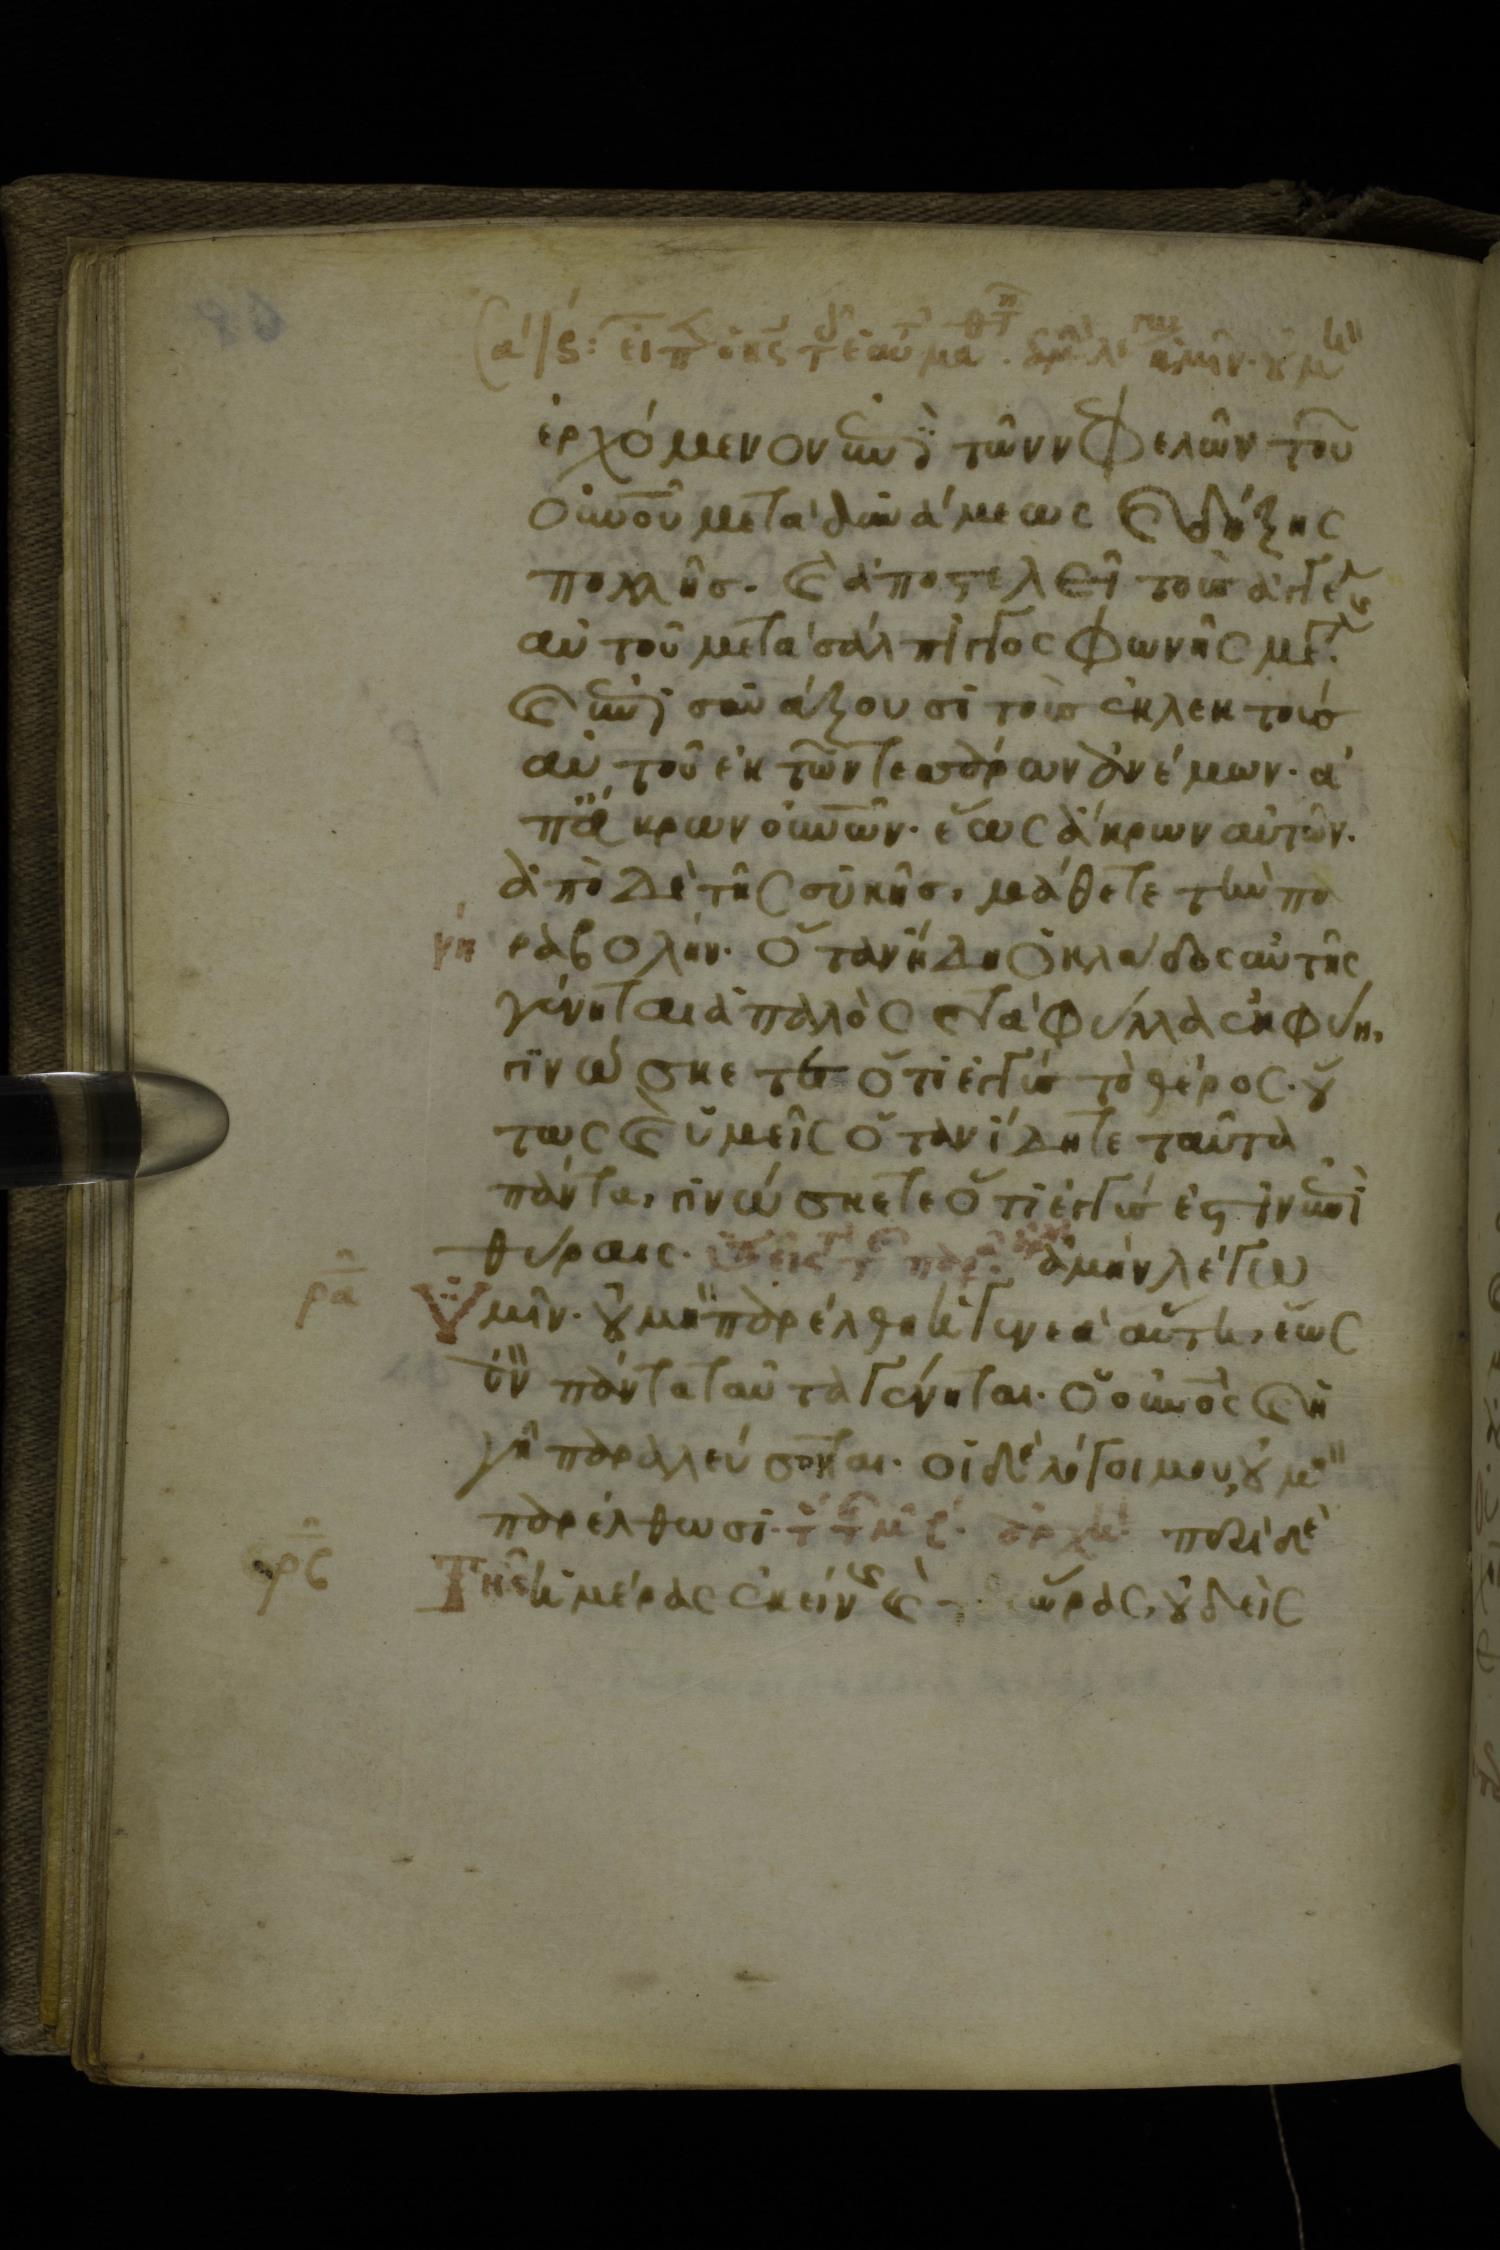 ἐρχόμενον ἐπὶ τῶν νεφελῶν τοῦ
οὐνοῦ μετὰ δυνάμεως καὶ δόξης
πολλῆσ· καὶ ἀποστελεῖ τοὺσ ἀγγέλους
αὐτοῦ μετὰ σάλπιγγος φωνῆς μεγάλης·
καὶ ἐπισυνάξουσι τοὺσ ἐκλεκτοὺσ
αὐτοῦ ἐκ τῶν τεσσάρων ἀνέμων· ἀ
π ἄκρων οὐνῶν· ἕως ἄκρων αὐτῶν·
ἀπὸ δὲ τῆς συκῆσ, μάθετε τὴν πα
νη ραβολήν· ὅταν ἤδη ὁ κλάδος αὐτῆς
γένηται ἁπαλὸς καὶ τὰ φύλλα ἐκφύη,
γινώσκεται ὅτι ἐγγὺσ τὸ θέρος· οὕ
τως καὶ ὑμεῖς ὅταν ἴδητε ταῦτα
πάντα, γινώσκετε ὅτι ἐγγύσ ἐστιν ἐπὶ
θύραις· ἀμὴν λέγω
ρα Ὑμῖν· οὐ μὴ παρέλθη ἡ γενεὰ αὕτη, ἕως
ἂν πάντα ταῦτα γένηται· ὁ οὐνὸς καὶ ἡ
γῆ παρελεύσονται· οἱ δὲ λόγοι μου, οὐ μὴ
παρέλθωσι· ἀρχὴ περὶ δὲ
ρς Τῆς ἡμέρας ἐκείνης καὶ ὥρας, οὐδεὶς